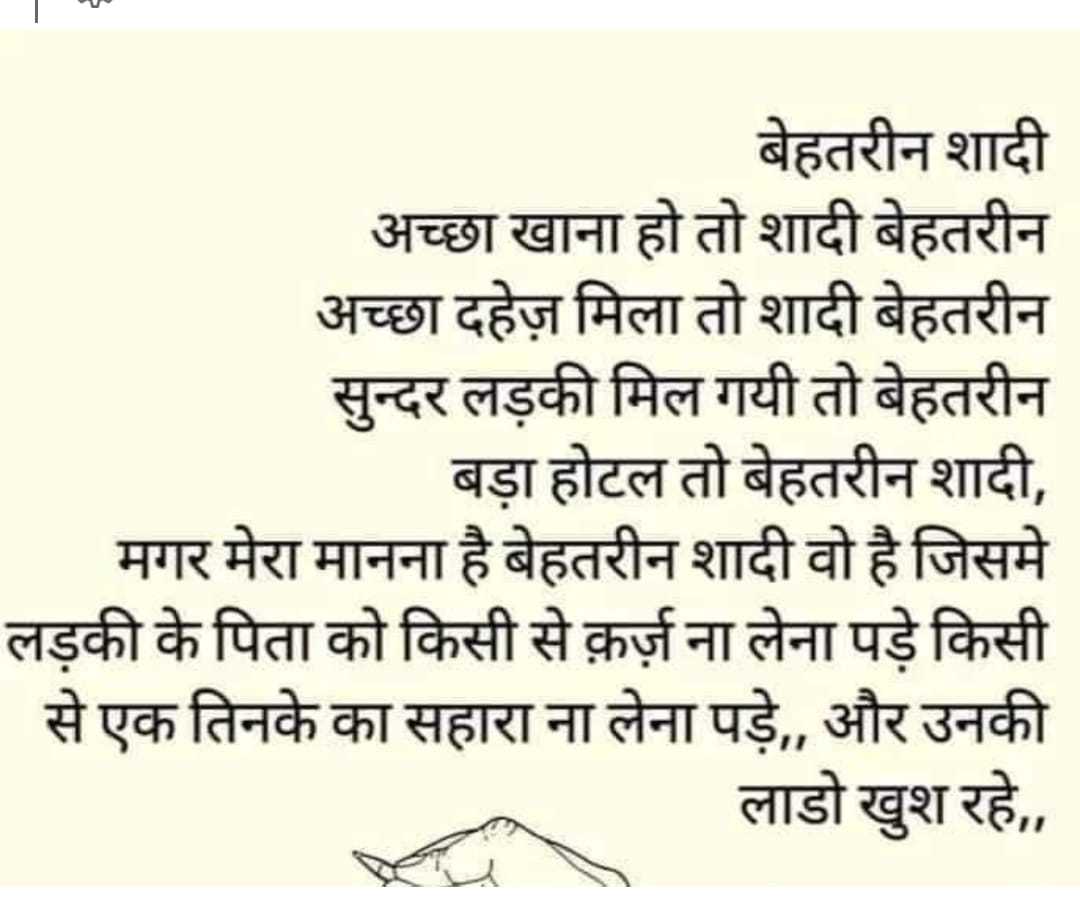 बेहतरीन शादी
अच्छा खाना हो तो शादी बेहतरीन
अच्छा दहेज़ मिला तो शादी बेहतरीन
सुन्दर लड़की मिल गयी तो बेहतरीन
बड़ा होटल तो बेहतरीन शादी,
मगर मेरा मानना है बेहतरीन शादी वो है जिसमे
लड़की के पिता को किसी से क़र्ज़ ना लेना पड़े किसी
से एक तिनके का सहारा ना लेना पड़े,, और उनकी
लाडो खुश रहे,,